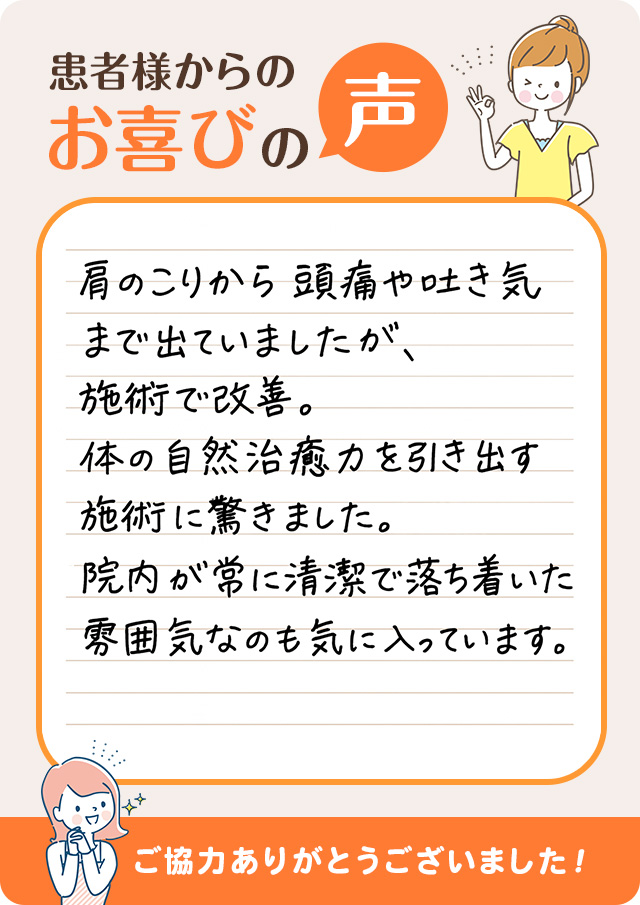 患者様からの
お喜びの声
肩のこりから 頭痛や吐き気
まで出ていましたが、
施術で改善。
体の自然治癒力を引き出す
施術に驚きました。
院内が常に清潔で落ち着いた
雰囲気なのも気に入っています。
ご協力ありがとうございました！